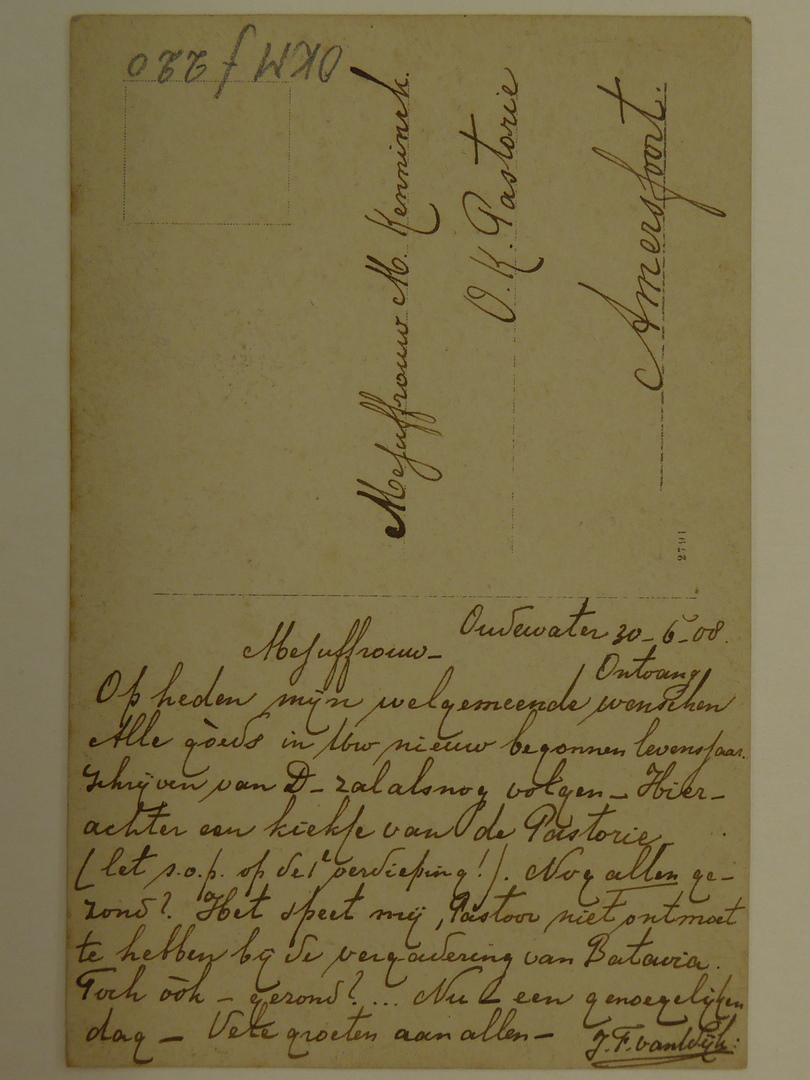 OKM f 220
Mejuffrouw M. Kenninck.
O.K. Pastorie
Amersfoort.
2791
Oudewater 30-6-08.
Mejuffrouw-
Ontvang
Op heden mijn welgemeende wenschen
Alle goeds in Uw nieuw begonnen levensjaar.
Schrijven van D- zal alsnog volgen- Hier-
achter een kiekje van de Pastorie
(let s.o.p. op de 1e verdieping!). Nog allen ge-
zond? Het speet mij, Pastoor niet ontmoet
te hebben bij de vergadering van Batavia.
Toch óók - gezond? ... Nu - een genoegelijken
dag - Vele groeten aan allen-
J.F. van Wijk.